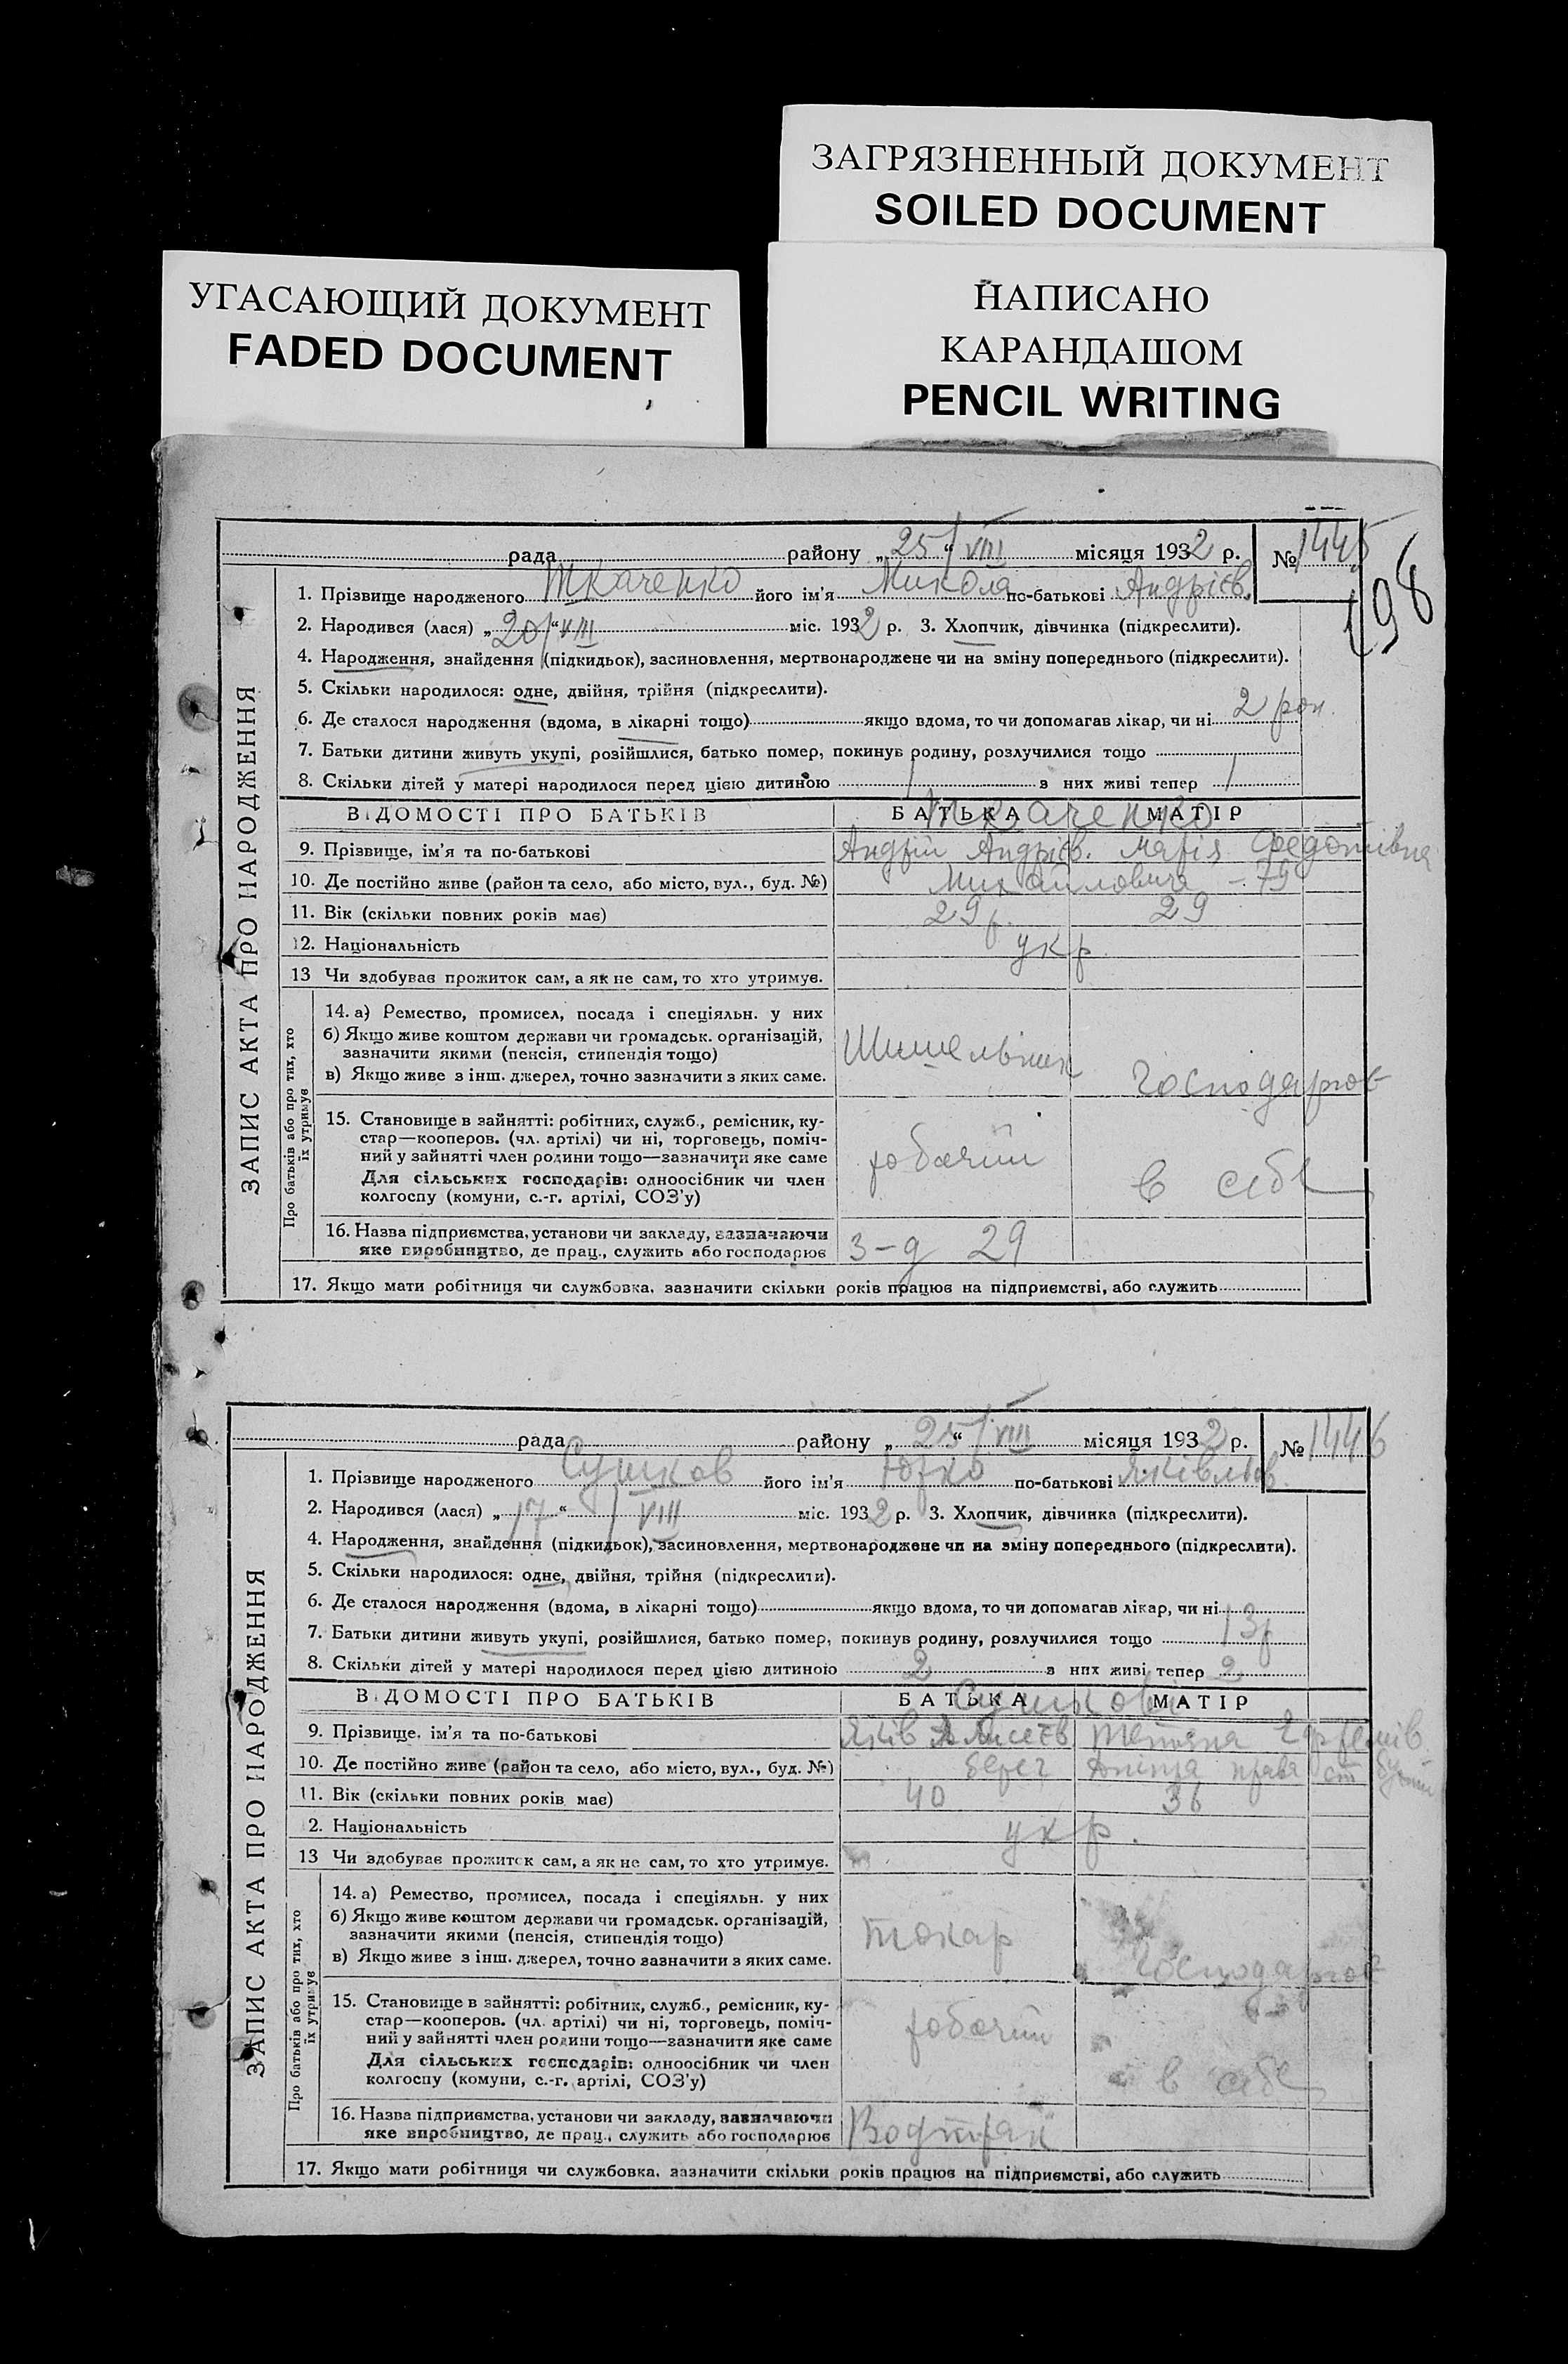 ЗАГРЯЗНЕННЫЙ ДОКУМЕНТ
SOILED DOCUMENT
УГАСАЮЩИЙ ДОКУМЕНТ
FADED DOCUMENT
НАПИСАНО
КАРАНДАШОМ
PENCIL WRITING
198
ЗАПИС АКТА ПРО НАРОДЖЕННЯ
рада района району „25/“ VIII місяця 1932 р. № 1445
1. Прізвище народженого Ткаченко його ім'я Микола по-батькові Андрієв.
2. Народився (лася) „20/“ VIII міс. 1932 р. 3. Хлопчик, дівчинка (підкреслити).
4. Народження, знайдення (підкидьок), засиновлення, мертвонароджене чи на зміну попереднього (підкреслити).
5. Скільки народилося: одне, двійня, трійня (підкреслити).
6. Де сталося народження (вдома, в лікарні тощо) якщо вдома, то чи допомагав лікар, чи ні 2
7. Батьки дитини живуть укупі, розійшлися, батько помер, покинув родину, розлучилися тощо
8. Скільки дітей у матері народилося перед цією дитиною 1 з них живі тепер 1
ВІДОМОСТІ ПРО БАТЬКІВ БАТЬКА МАТІР
Ткаченко
9. Прізвище, ім'я та по-батькові Андрій Андрієв. Марія Федотівна
10. Де постійно живе (район та село, або місто, вул., буд. №) Михайловича - 79
11. Вік (скільки повних років має) 29 р. 29
12. Національність укр
13 Чи здобував прожиток сам, а як не сам, то хто утримує.
Про батьків або про тих, хто їх утримує
14. а) Ремество, промисел, посада і спеціяльн. у них
б) Якщо живе коштом держави чи громадськ. організацій,
зазначити якими (пенсія, стипендія тощо)
в) Якщо живе з інш. джерел, точно зазначити з яких саме.
господарює
15. Становище в зайнятті: робітник, служб., ремісник, ку-
стар—кооперов. (чл. артілі) чи ні, торговець, поміч-
ний у зайнятті член родини тощо—зазначити яке саме
робочий в себе
Для сільських господарів: одноосібник чи член
колгоспу (комуни, с.-г. артілі, СОЗ'у)
16. Назва підприємства, установи чи закладу, зазначаючи
яке виробництво, де прац., служить або господарює з-д 29
17. Якщо мати робітниця чи службовка, зазначити скільки років працює на підприємстві, або служить
ЗАПИС АКТА ПРО НАРОДЖЕННЯ
рада району „25/“ VIII місяця 1932 р. № 1446
1. Прізвище народженого Сушков його ім'я Юрко по-батькові Яківльов.
2. Народився (лася) „17“ / VIII міс. 1932 р. 3. Хлопчик, дівчинка (підкреслити).
4. Народження, знайдення (підкидьок), засиновлення, мертвонароджене чи на зміну попереднього (підкреслити).
5. Скільки народилося: одне, двійня, трійня (підкреслити).
6. Де сталося народження (вдома, в лікарні тощо) якщо вдома, то чи допомагав лікар, чи ні
7. Батьки дитини живуть укупі, розійшлися, батько помер, покинув родину, розлучилися тощо 13р
8. Скільки дітей у матері народилося перед цією дитиною 2 з них живі тепер 2
ВІДОМОСТІ ПРО БАТЬКІВ БАТЬКА МАТІР
Сушкови
9. Прізвище, ім'я та по-батькові Яків Тетяна
10. Де постійно живе (район та село, або місто, вул., буд. №) берег Дніпра права
11. Вік (скільки повних років має) 40 36
2. Національність укр.
13 Чи здобував прожиток сам, а як не сам, то хто утримує.
Про батьків або про тих, хто їх утримує
14. а) Ремество, промисел, посада і спеціяльн. у них
б) Якщо живе коштом держави чи громадськ. організацій,
зазначити якими (пенсія, стипендія тощо)
в) Якщо живе з інш. джерел, точно зазначити з яких саме.
токар господарює
15. Становище в зайнятті: робітник, служб., ремісник, ку-
стар—кооперов. (чл. артілі) чи ні, торговець, поміч-
ний у зайнятті член родини тощо—зазначити яке саме
робочий в себе
Для сільських господарів: одноосібник чи член
колгоспу (комуни, с.-г. артілі, СОЗ'у)
16. Назва підприємства, установи чи закладу, зазначаючи
яке виробництво, де прац., служить або господарює
17. Якщо мати робітниця чи службовка, зазначити скільки років працює на підприємстві, або служить